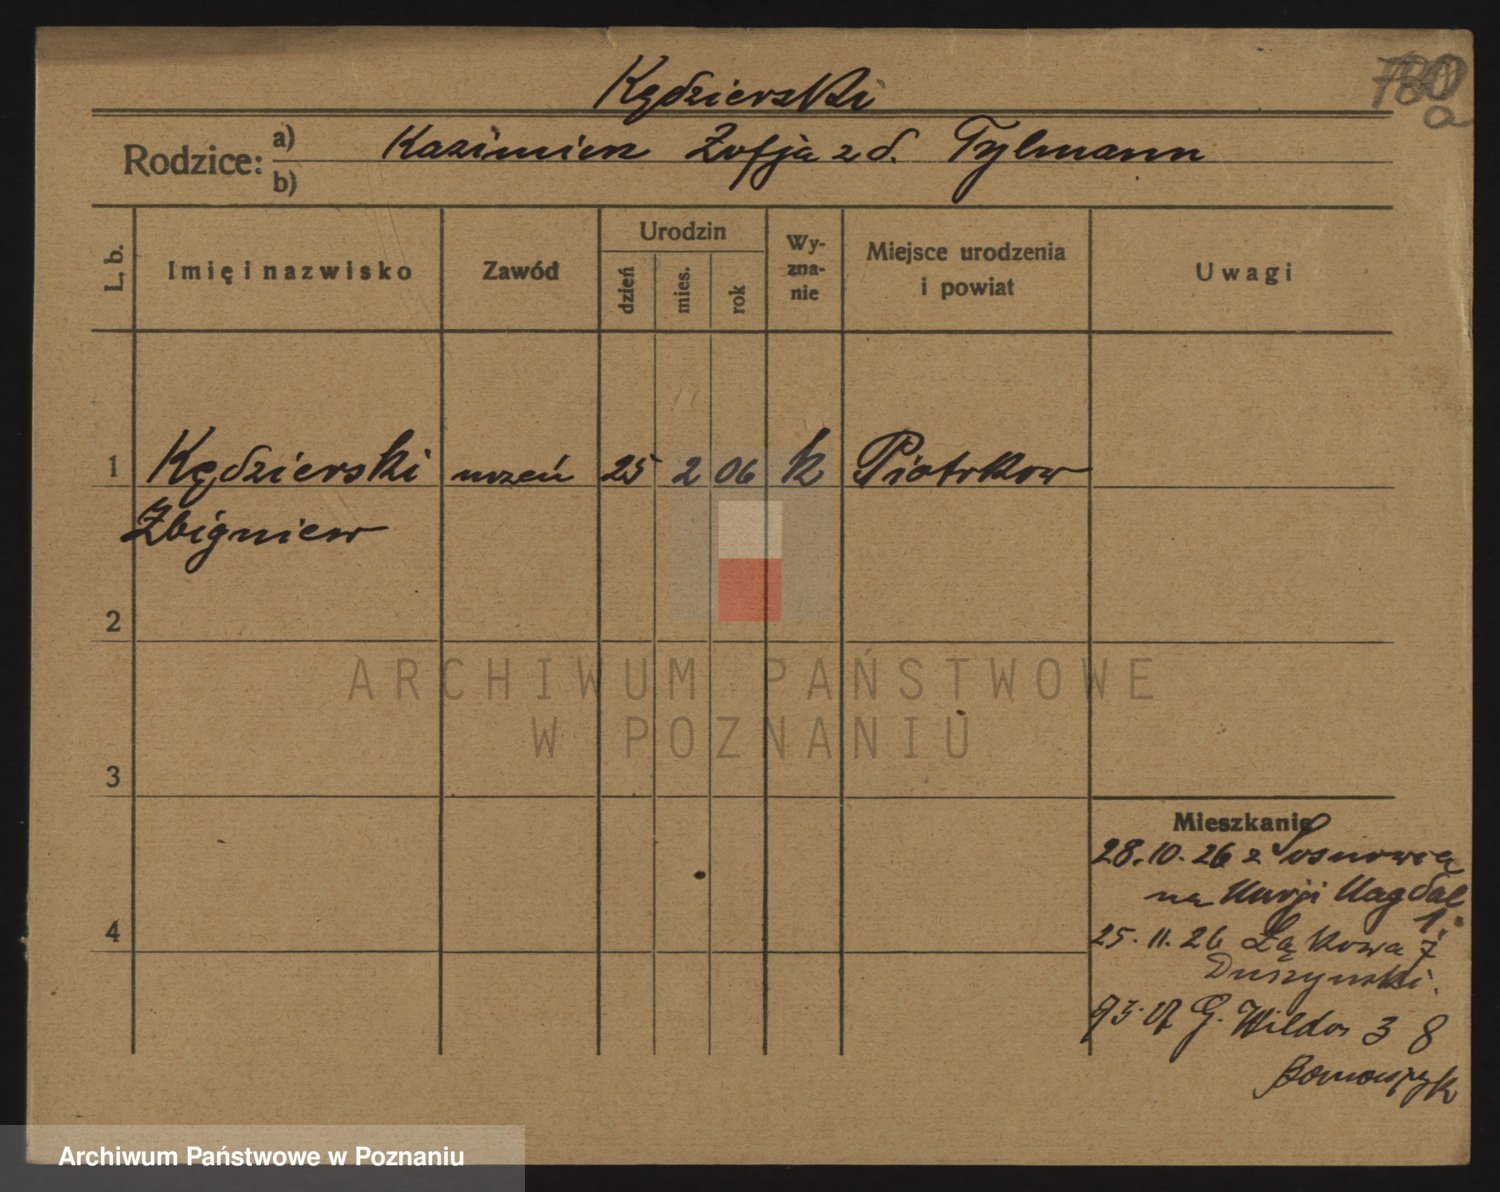 Kędzierski
780
a
Rodzice: a) Kazimierz Zofja z d. Tylmann
b)
L. b.
Imię i nazwisko
Zawód
Urodzin
dzień
mies.
rok
Wy-
zna-
nie
Miejsce urodzenia
i powiat
Uwagi
1 Kędzierski uczeń 25 2 06 k Piotrkow
Zbigniew
2
3
4
Mieszkanie
28. 10. 26 z Sosnowca
na Marji Magdal
1.
25. 11. 26 Łąkowa 7
Duszynski.
G. Wilda 3 8
ARCHIWUM PAŃSTWOWE
W POZNANIU
Archiwum Państwowe w Poznaniu